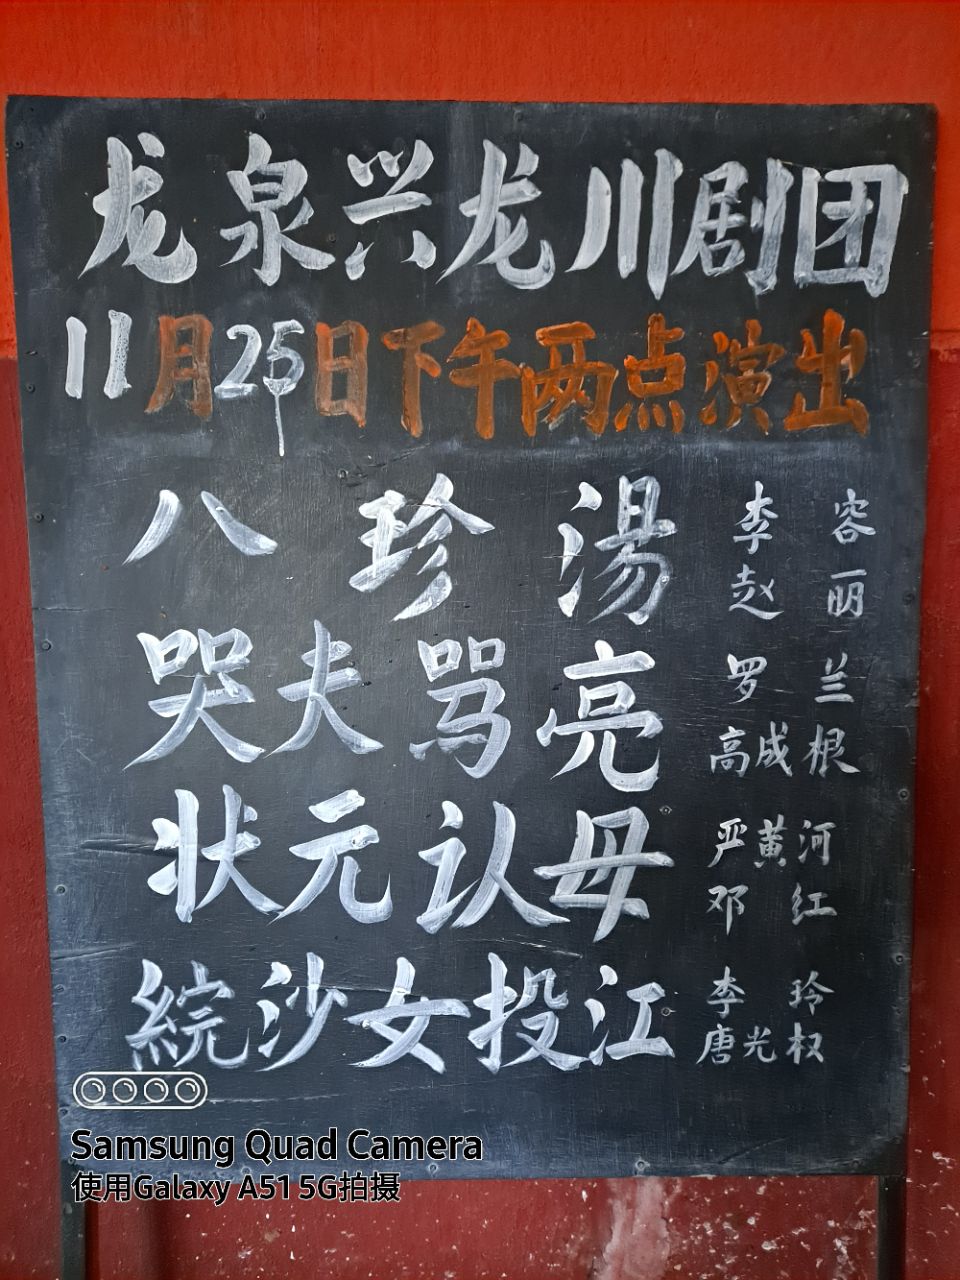 龙泉兴龙川剧团
11月25日下午两点演出
八珍湯 李容 赵丽
哭夫骂亮 罗兰 高成根
状元认母 严黄河 邓红
綄沙女投江 李玲 唐光权
Samsung Quad Camera
使用Galaxy A51 5G拍摄